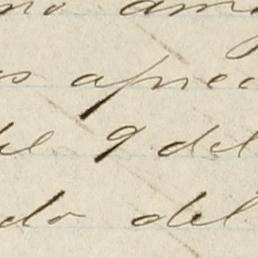 no am
os aprec
del 9 del
do del